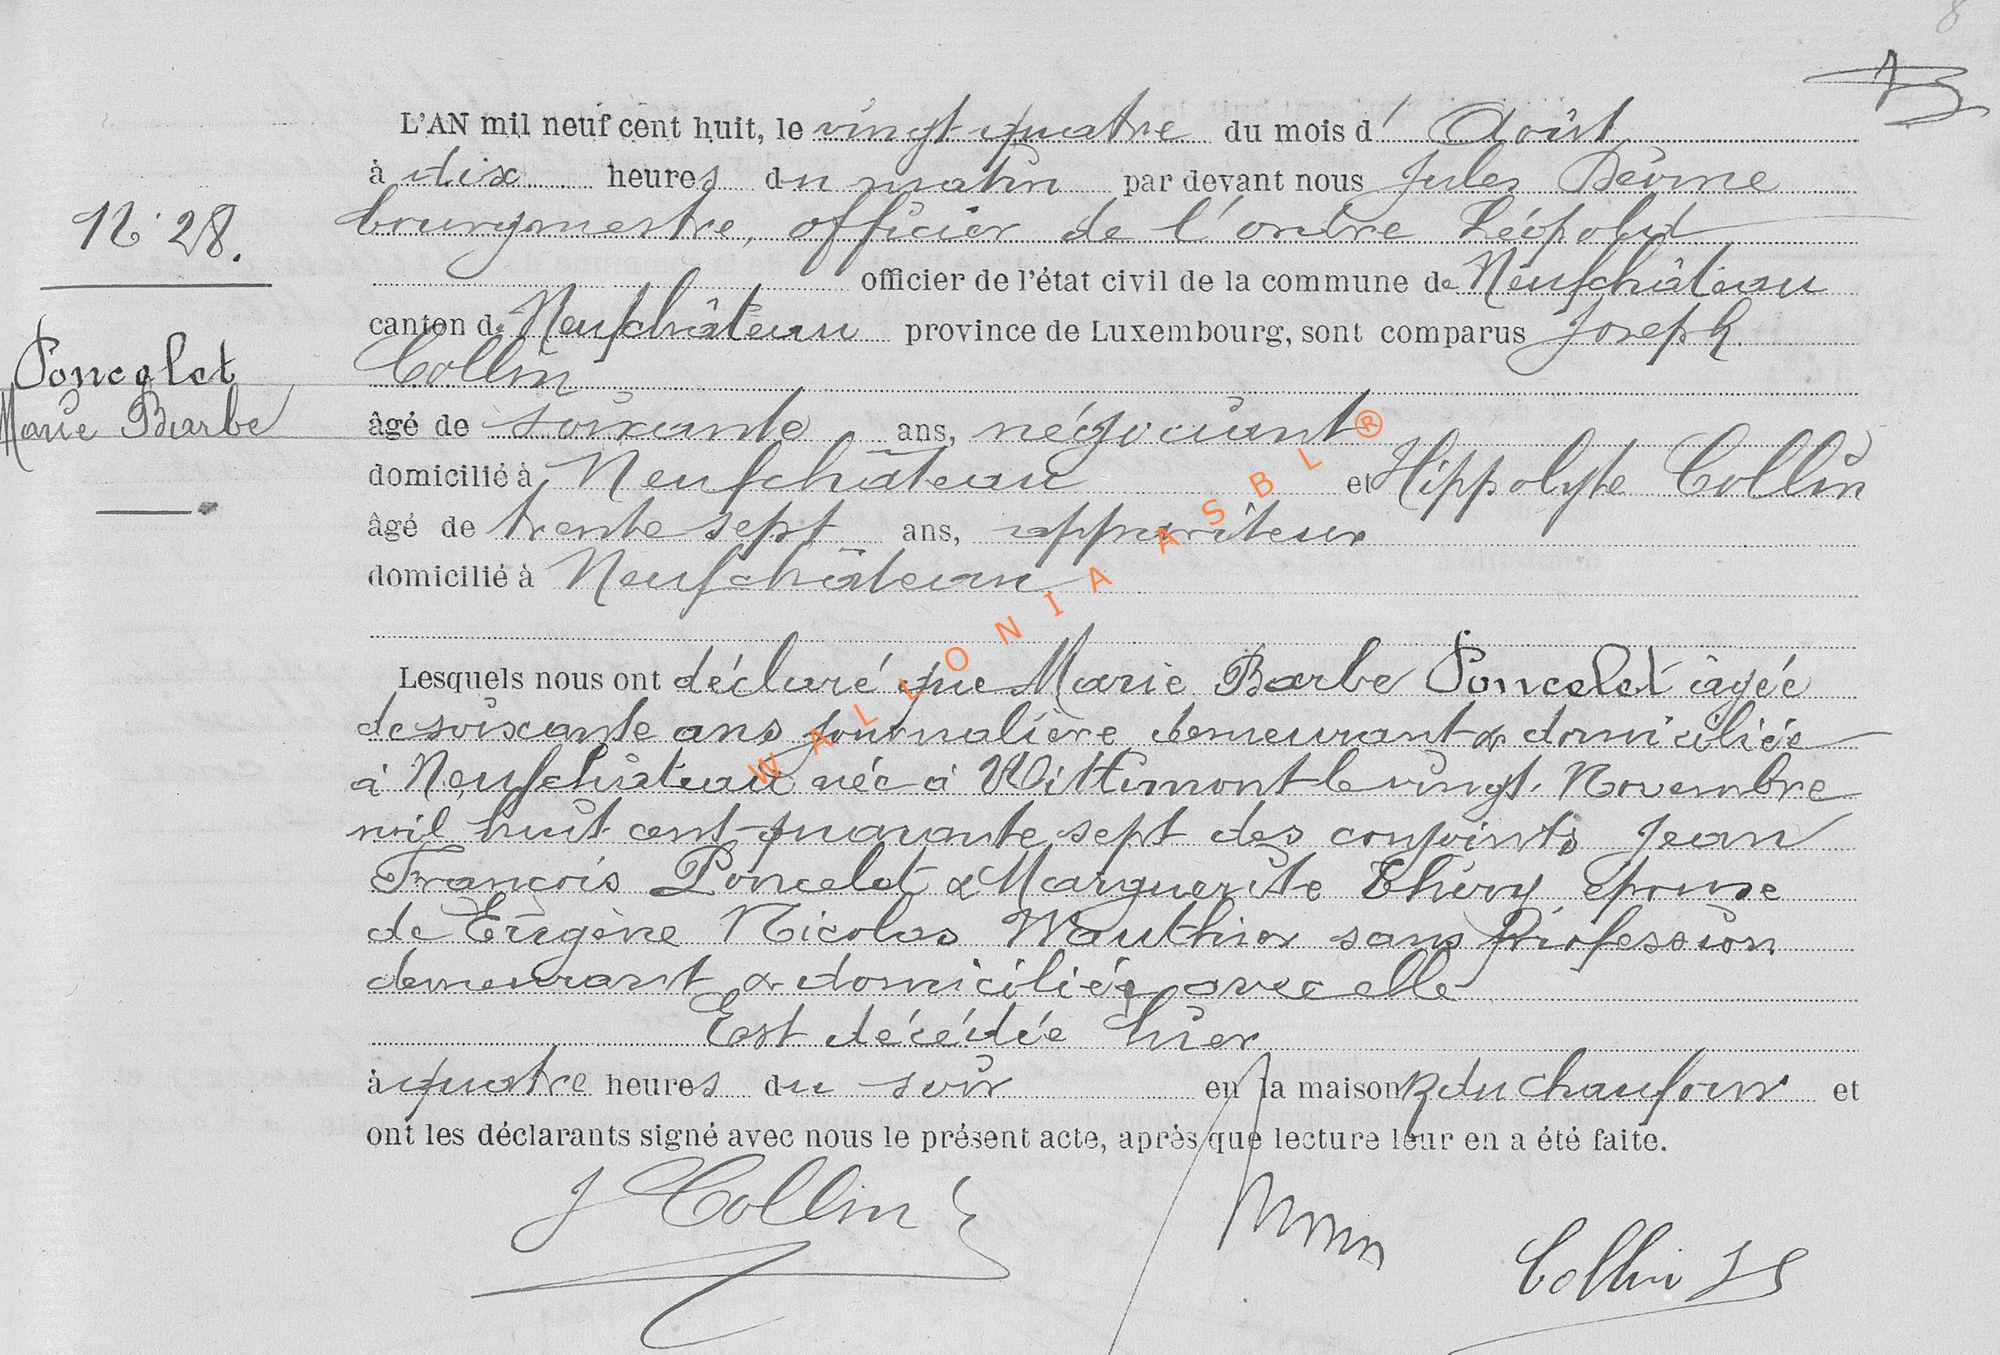 8
L'AN mil neuf cent huit, le vingt-quatre du mois d' Août
à dix heures du matin par devant nous Jules
N° 28.
bourgmestre, officier de l'ordre Léopold
officier de l'état civil de la commune de Neufchâteau
canton de Neufchâteau province de Luxembourg, sont comparus Joseph
Poncelet
Marie Barbe
Collin
âgé de soixante ans, négociant
domicilié à Neufchâteau et Hippolyte Collin
âgé de trente sept ans, appariteur
domicilié à Neufchâteau
WALLONIA ASBL ®
Lesquels nous ont déclaré que Marie Barbe Poncelet âgée
de soixante ans journalière demeurant & domiciliée
à Neufchâteau née à Wittimont le vingt Novembre
mil huit cent quarante sept des conjoints Jean
François Poncelet & Marguerite Thiry épouse
de Eugène Nicolas Wauthier sans Profession
demeurant & domiciliée avec elle
Est décédée hier
à quatre heures du soir en la maison R du Chaufour et
ont les déclarants signé avec nous le présent acte, après que lecture leur en a été faite.
J Collin
Collin